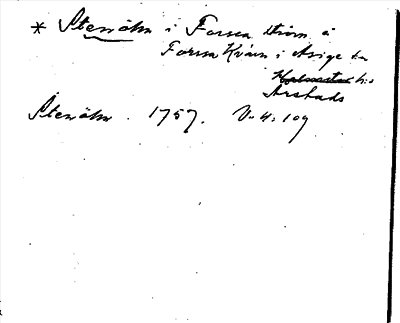 * Stenöhn i Forssa ström å
Forssa Kvarn i Asige sn
Halmstad h:d
Årstads
Stenöhn. 1757. V. 4: 109